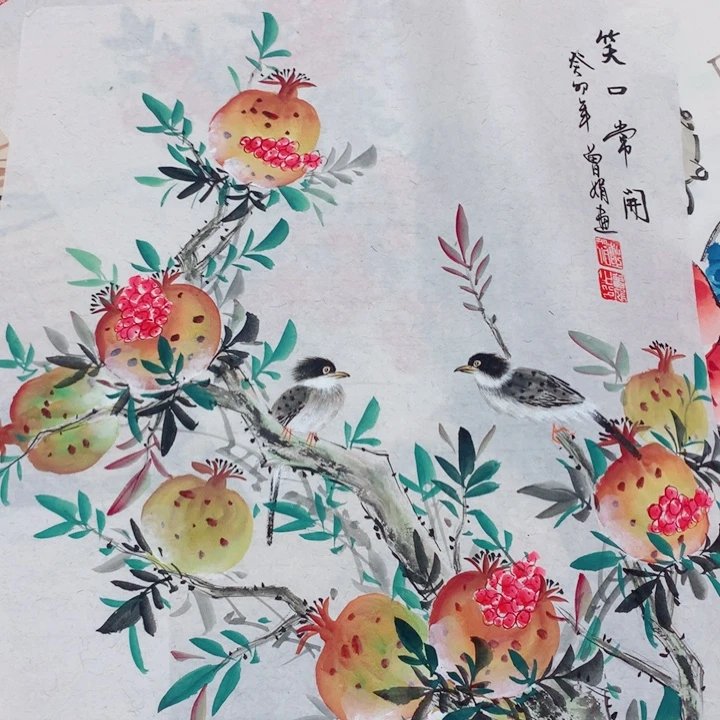 笑口常開
癸卯年 曾娟畫